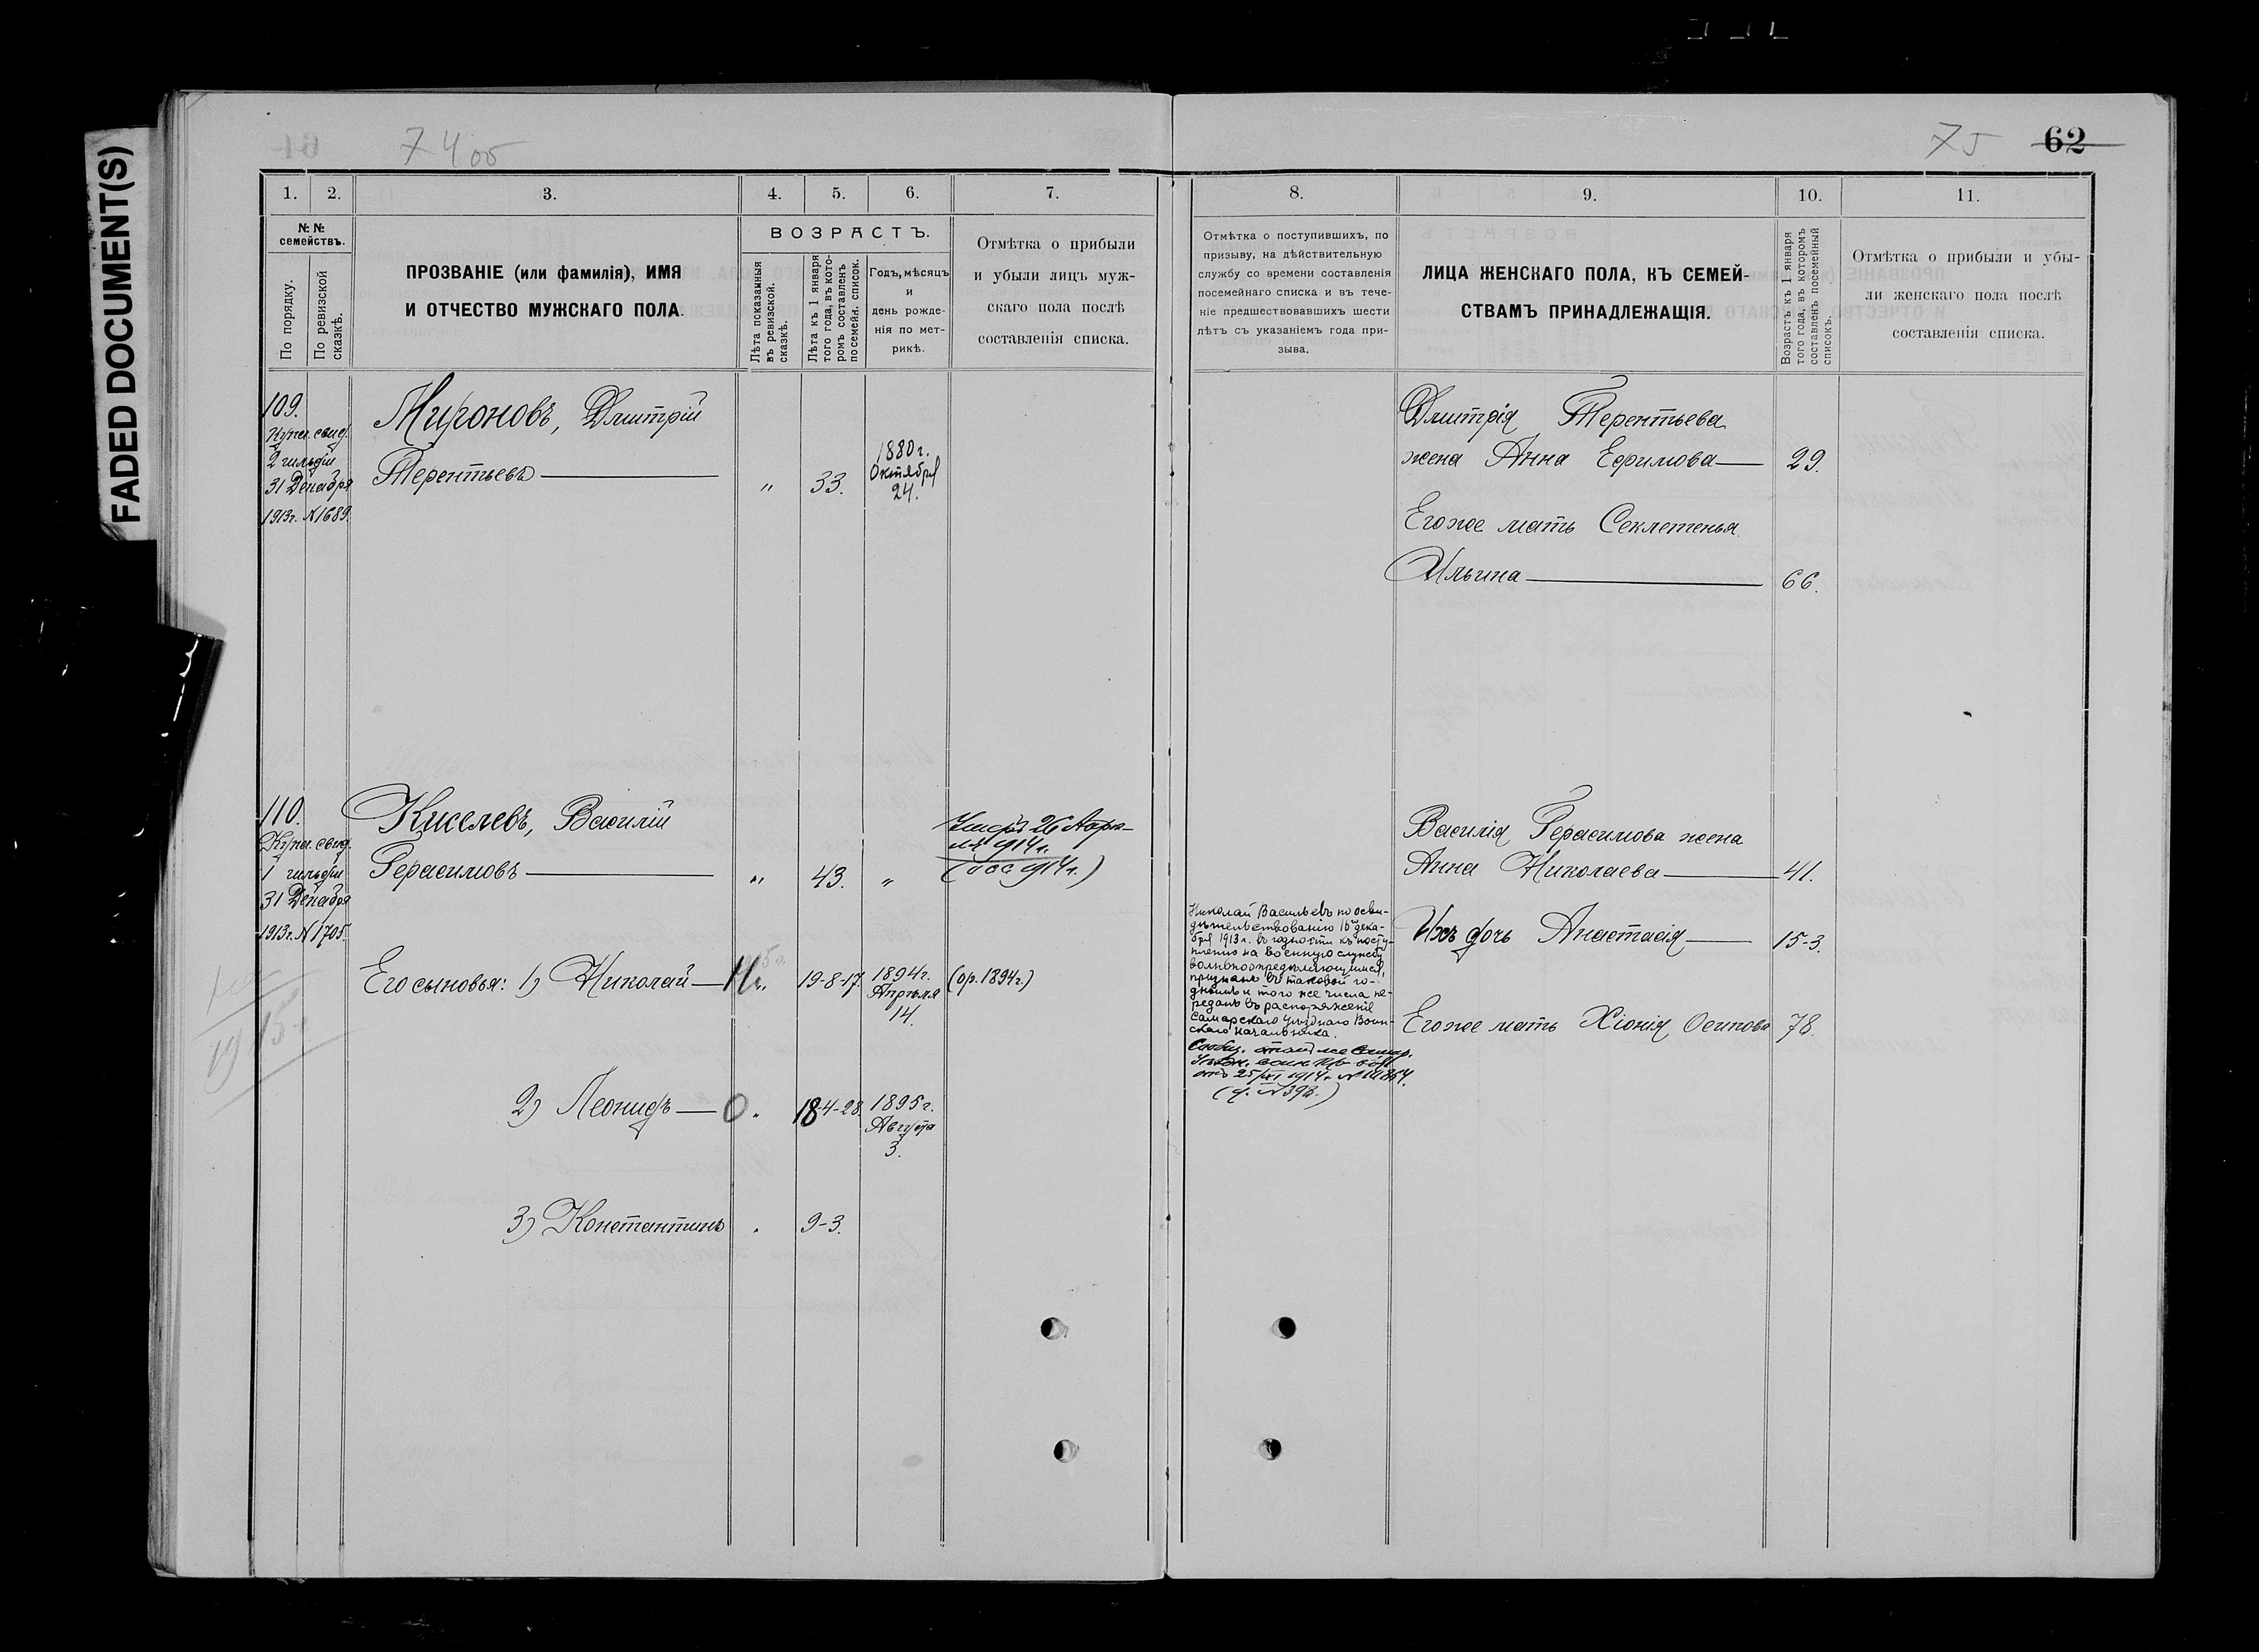 FADED DOCUMENT(S)
74 об
75 62
1. 2. 3. 4. 5. 6. 7.
№ №
семействъ.
По порядку.
По ревизской
сказкѣ.
ПРОЗВАНІЕ (или фамилія), ИМЯ
И ОТЧЕСТВО МУЖСКАГО ПОЛА.
ВОЗРАСТЪ.
Лѣта показанныя
въ ревизской.
сказкѣ.
Лѣта къ 1 января
того года, въ кото-
ромъ составленъ
по семейн. список.
Годъ, мѣсяцъ
и
день рожде-
нія по мет-
рикѣ.
Отмѣтка о прибыли
и убыли лицъ муж-
скаго пола послѣ
составленія списка.
8. 9. 10. 11.
Отмѣтка о поступившихъ, по
призыву, на дѣйствительную
службу со времени составленія
посемейнаго списка и въ тече-
ніе предшествовавшихъ шести
лѣтъ съ указаніемъ года при-
зыва.
ЛИЦА ЖЕНСКАГО ПОЛА, КЪ СЕМЕЙ-
СТВАМЪ ПРИНАДЛЕЖАЩІЯ.
Возрастъ къ 1 января
того года, въ которомъ
составленъ посемейный
списокъ.
Отмѣтка о прибыли и убы-
ли женскаго пола послѣ
составленія списка.
109.
Купеч. свид.
2 гильдіи
31 Декабря
1913г. №1689.
Мироновъ, Дмитрій
Терентьевъ " 33.
1880г.
Октября
24.
Дмитрія Терентьева
жена Анна Ефимова 29.
Его же мать Секлетенья
Ильина 66.
110.
Купеч. свид.
1 гильдіи
31 Декабря
1913г. №1705.
Киселевъ, Василій
Герасимовъ " 43. "
Умеръ 26 Апрѣ-
ля 1914г.
1914г.)
Его сыновья: 1) Николай " 19-8-17.
1894г.
Апрѣля
14.
(ор. 1894г.)
2) Леонидъ 18-4-28.
1895г.
Августа
3.
3) Константинъ 9-3.
1915г.
Николай Васильевъ по осви-
дѣтельствованію 16 дека-
бря 1913г. въ годности къ посту-
пленію на военную службу
вольноопредѣляющимся,
признанъ въ таковой го-
днымъ и того же числа пе-
реданъ въ распоряженіе
Самарскаго Уѣзднаго Воин-
скаго Начальника.
1914г. №
Василія Герасимова жена
Анна Николаева 41.
Ихъ дочь Анастасія 15-3.
Его же мать Хіонія Осипова 78.